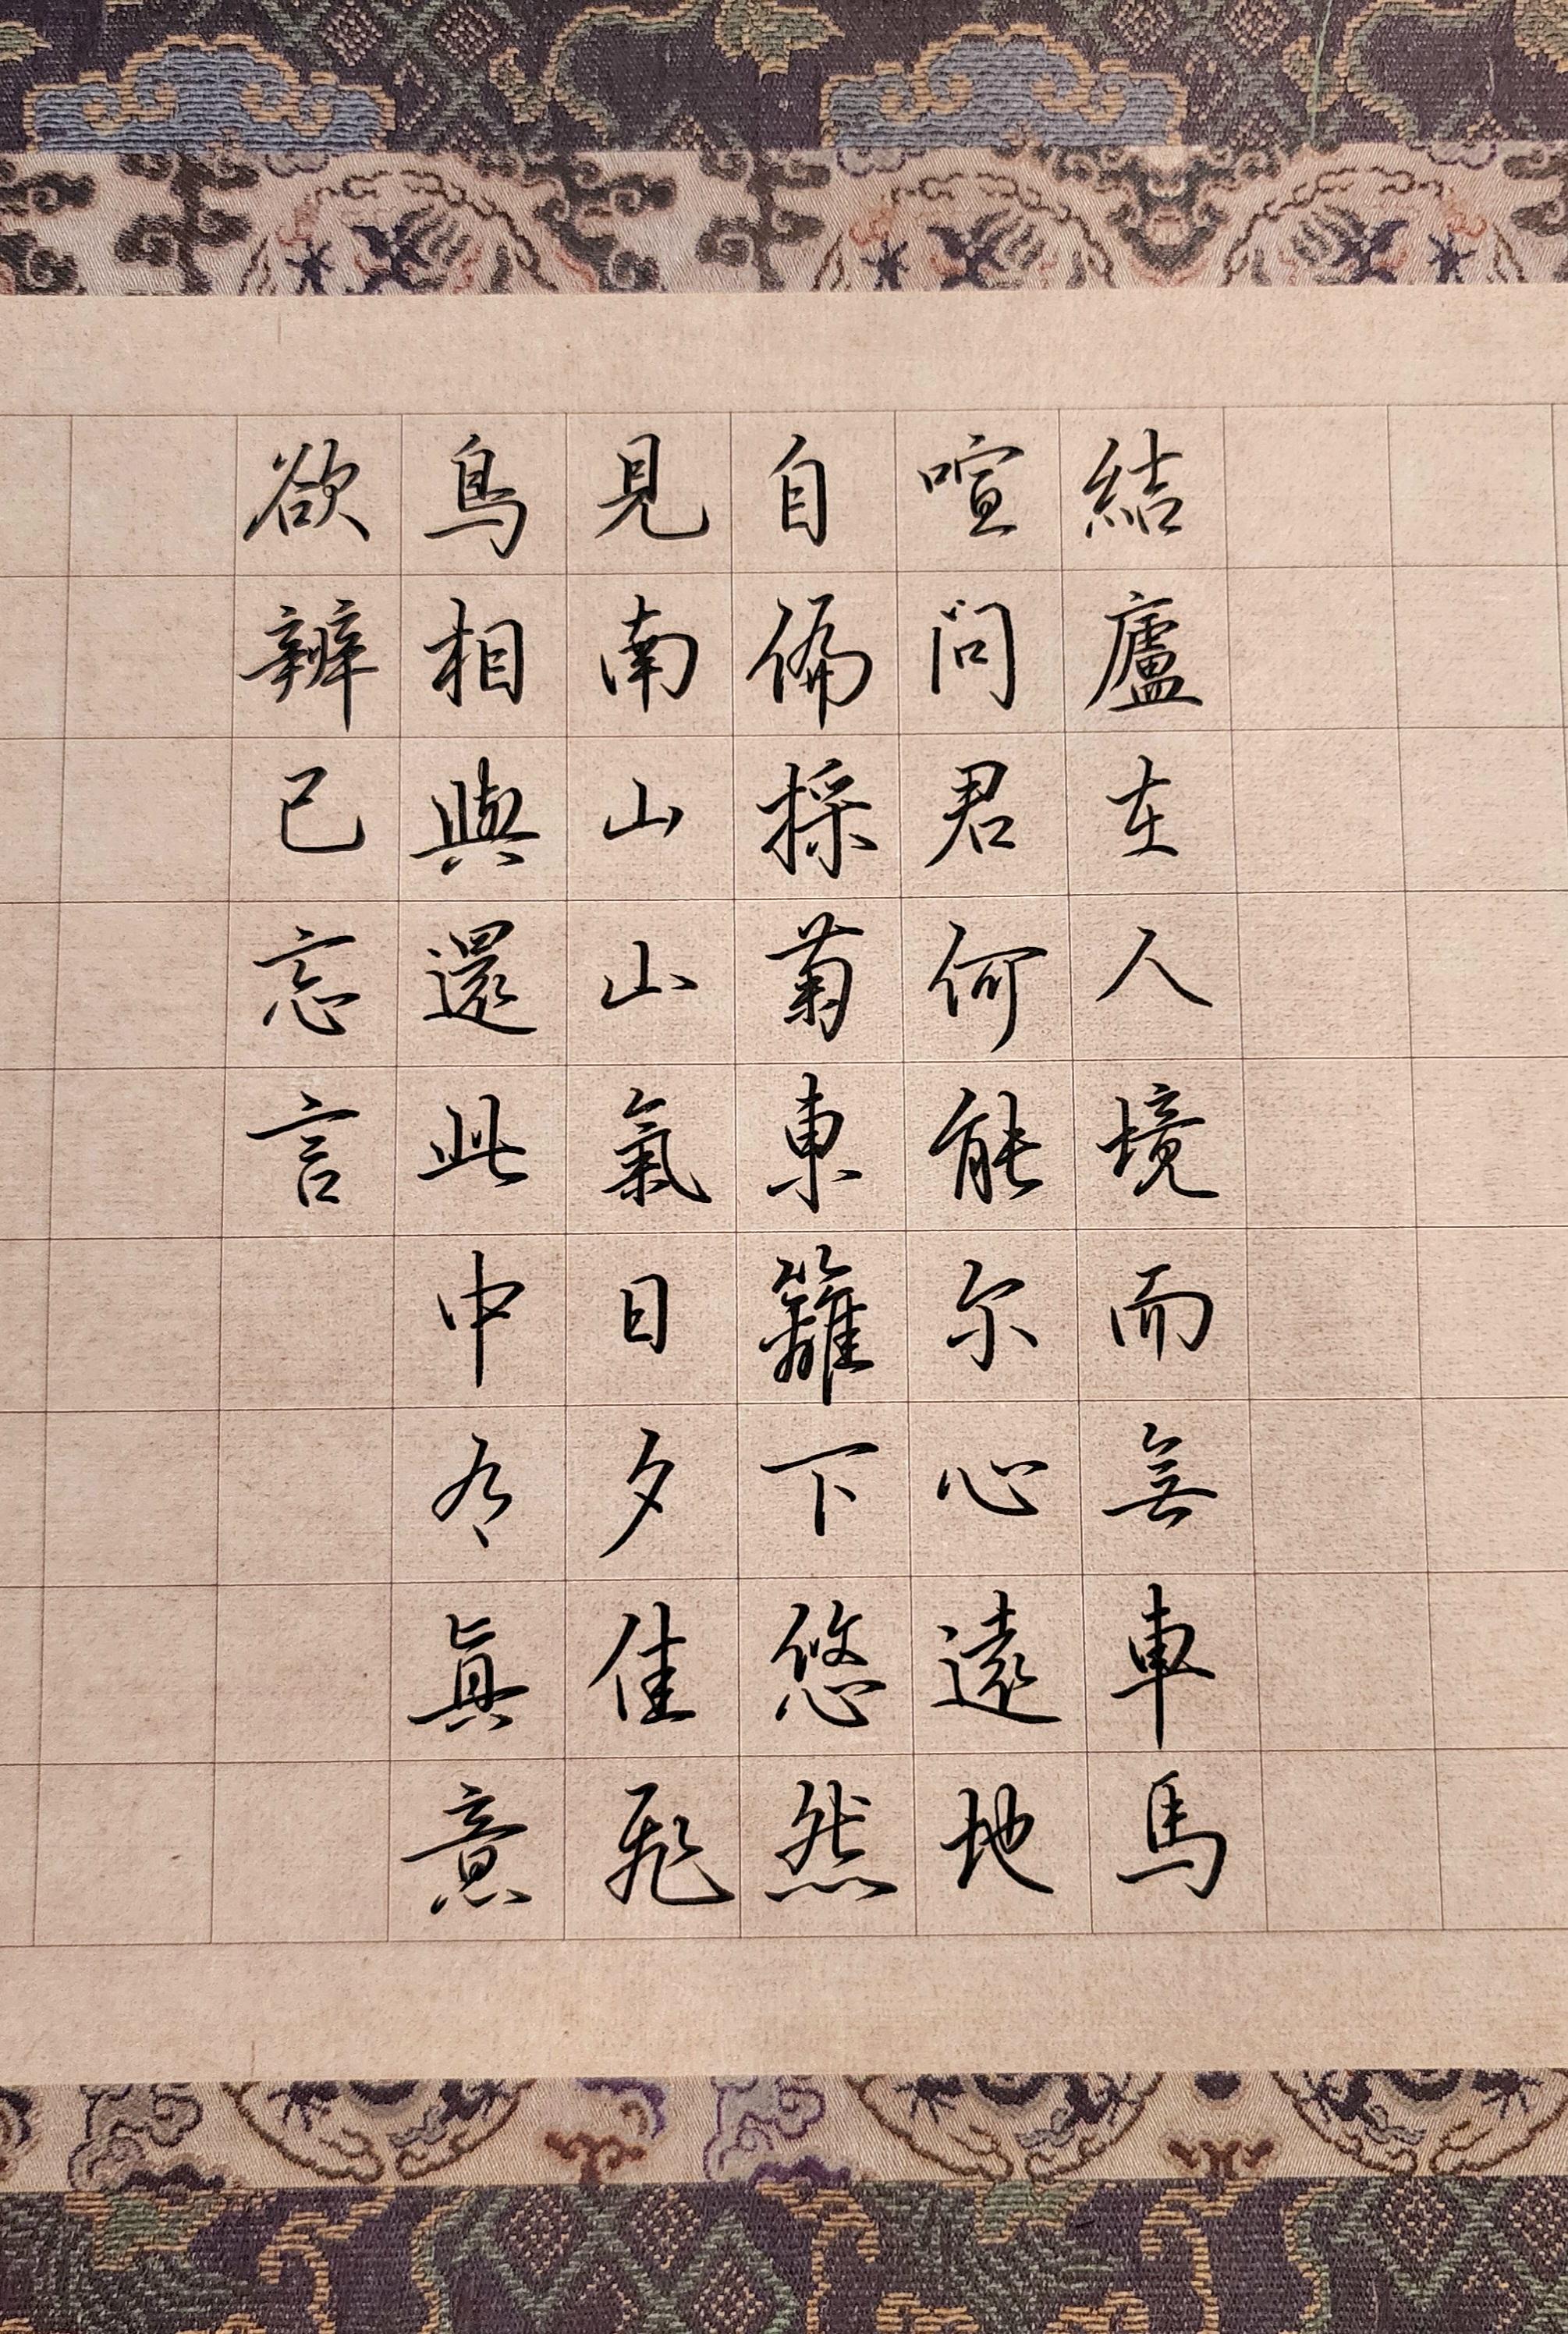 結廬在人境而無車馬
喧問君何能尔心遠地
自偏採菊東籬下悠然
見南山山氣日夕佳飛
鳥相與還此中有真意
欲辨已忘言